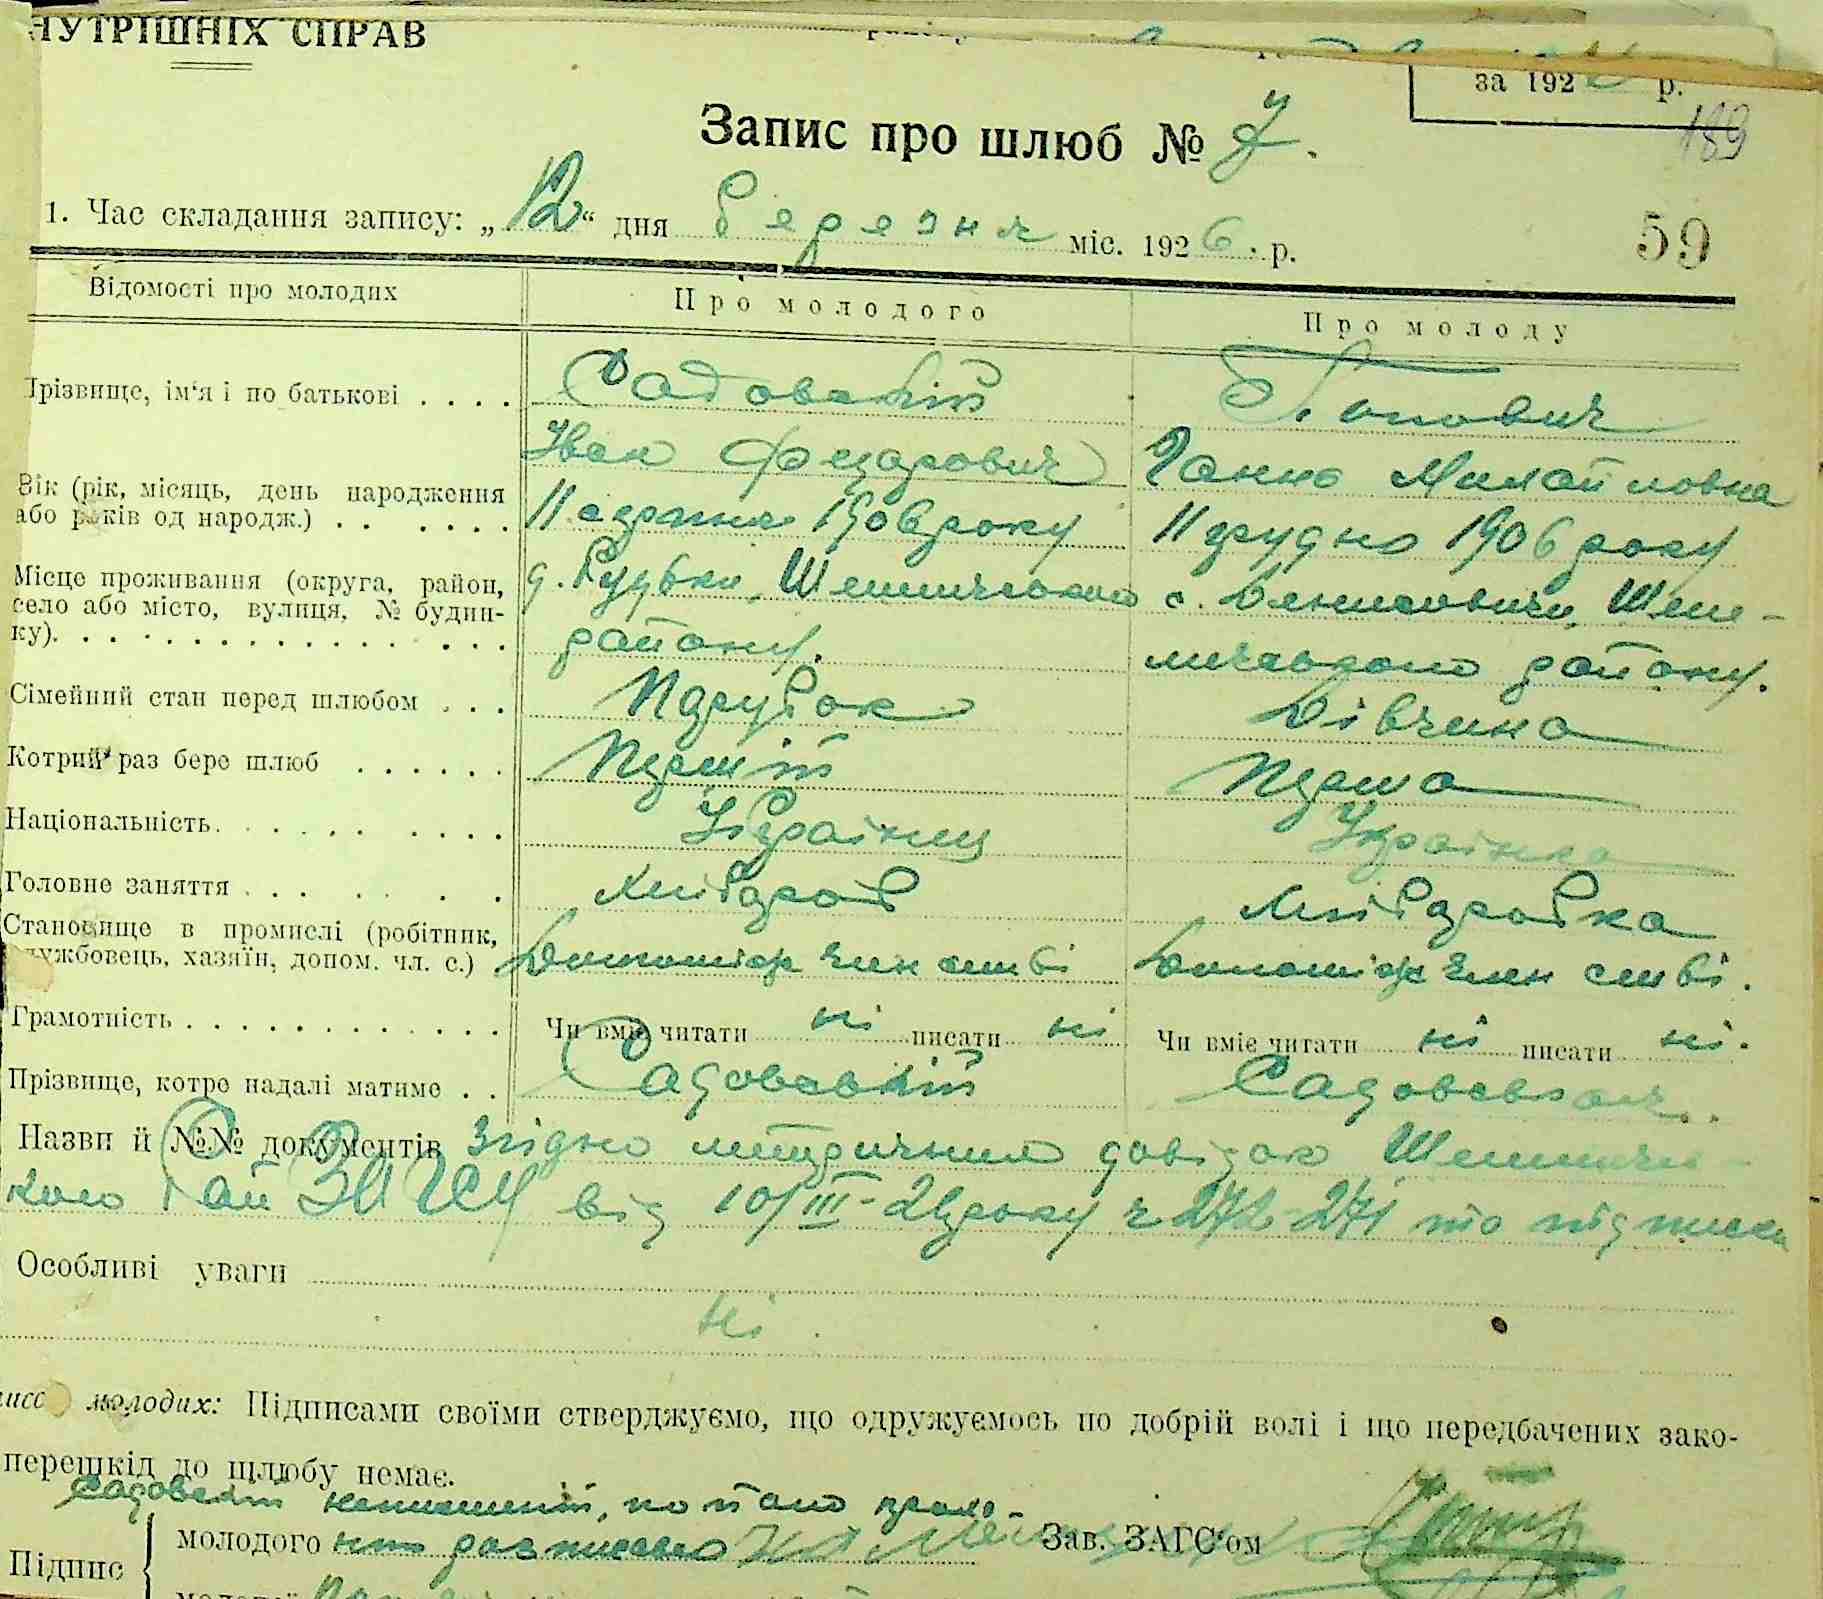 НУТРІШНІХ СПРАВ
за 192 р.
189
Запис про шлюб №
1. Час складання запису: „12“ дня березня міс. 1926. р.
59
Відомості про молодих Про молодого Про молоду
Прізвище, ім‘я і по батькові . . . . Садовський Попович
Іван Федорович Ганна Михайловна
Вік (рік, місяць, день народження
або років од народж.) . . . . . . 11 серпня 1906 року 11 грудня 1906 року
Місце проживання (округа, район, д. Рудьки, Шепелического с. Денисовичи, Шепе-
село або місто, вулиця, № будин-
ку). району. личського району.
Сімейний стан перед шлюбом . . . Парубок Дівчина
Котрий раз бере шлюб . . . . . . Перший Перша
Національність. Українец Українка
Головне заняття Хлібороб Хліборобка
Становище в промислі (робітник,
службовець, хазяїн, допом. чл. с.) Допоміж член симві Допоміж член симві.
Грамотність Чи вміє читати ні писати ні Чи вміє читати ні писати ні.
Прізвище, котре надалі матиме . . Садовський Садовська
Назви й №№ документів Згідно метричних довідок
кого Рай ЗАГСу від 10/III-26 року ч 272-271 та підписки
Особливі уваги
ні
молодих: Підписами своїми стверджуємо, що одружуємось по добрій волі і що передбачених зако-
перешкід до шлюбу немає.
Садовский неписьменний, по його прохо-
Підпис
молодого нию расписался Зав. ЗАГС‘ом